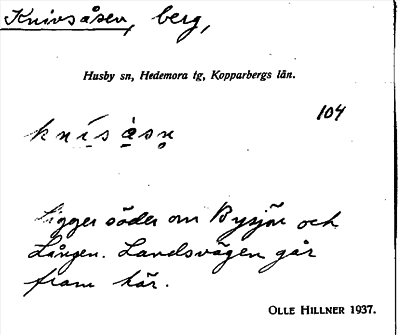 Knivsåsen, berg,
Husby sn, Hedemora tg, Kopparbergs län.
104
knísàsn
Ligger söder om Bysjön och
Lången. Landsvägen går
fram här.
OLLE HILLNER 1937.